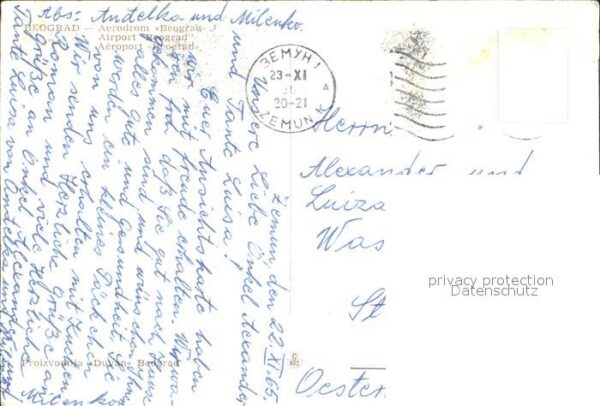 Abs: Anđelka und Milenko.
BEOGRAD — Aerodrom »Beograd«
Airport »Beograd«
Aéroport »Beograd«
ЗЕМУН 1
23-XI
20-21
ZEMUN
Zemun den 22.XI.65.
Unsere Liebe Onkel Alexander
und Tante Luisa!
Euer Ansichtskarte haben
wir mit freude erhalten. Wir
froh daß Sie gut nach Hause
gekommen sind und wünschen Ihnen
alles gute und Gesundheit. Sie
werden ein kleines Päckchen
von uns erhalten mit Kuchen
Wir senden Herzliche Grüße an
und viele Herzliche
Grüße an Onkel Alexander und
Tante Luisa von Anđelka und
Milenko
Herrn
Alexander und
Luiza
Was
St
Oester
privacy protection
Datenschutz
Proizvodnja »Dujan« Beograd